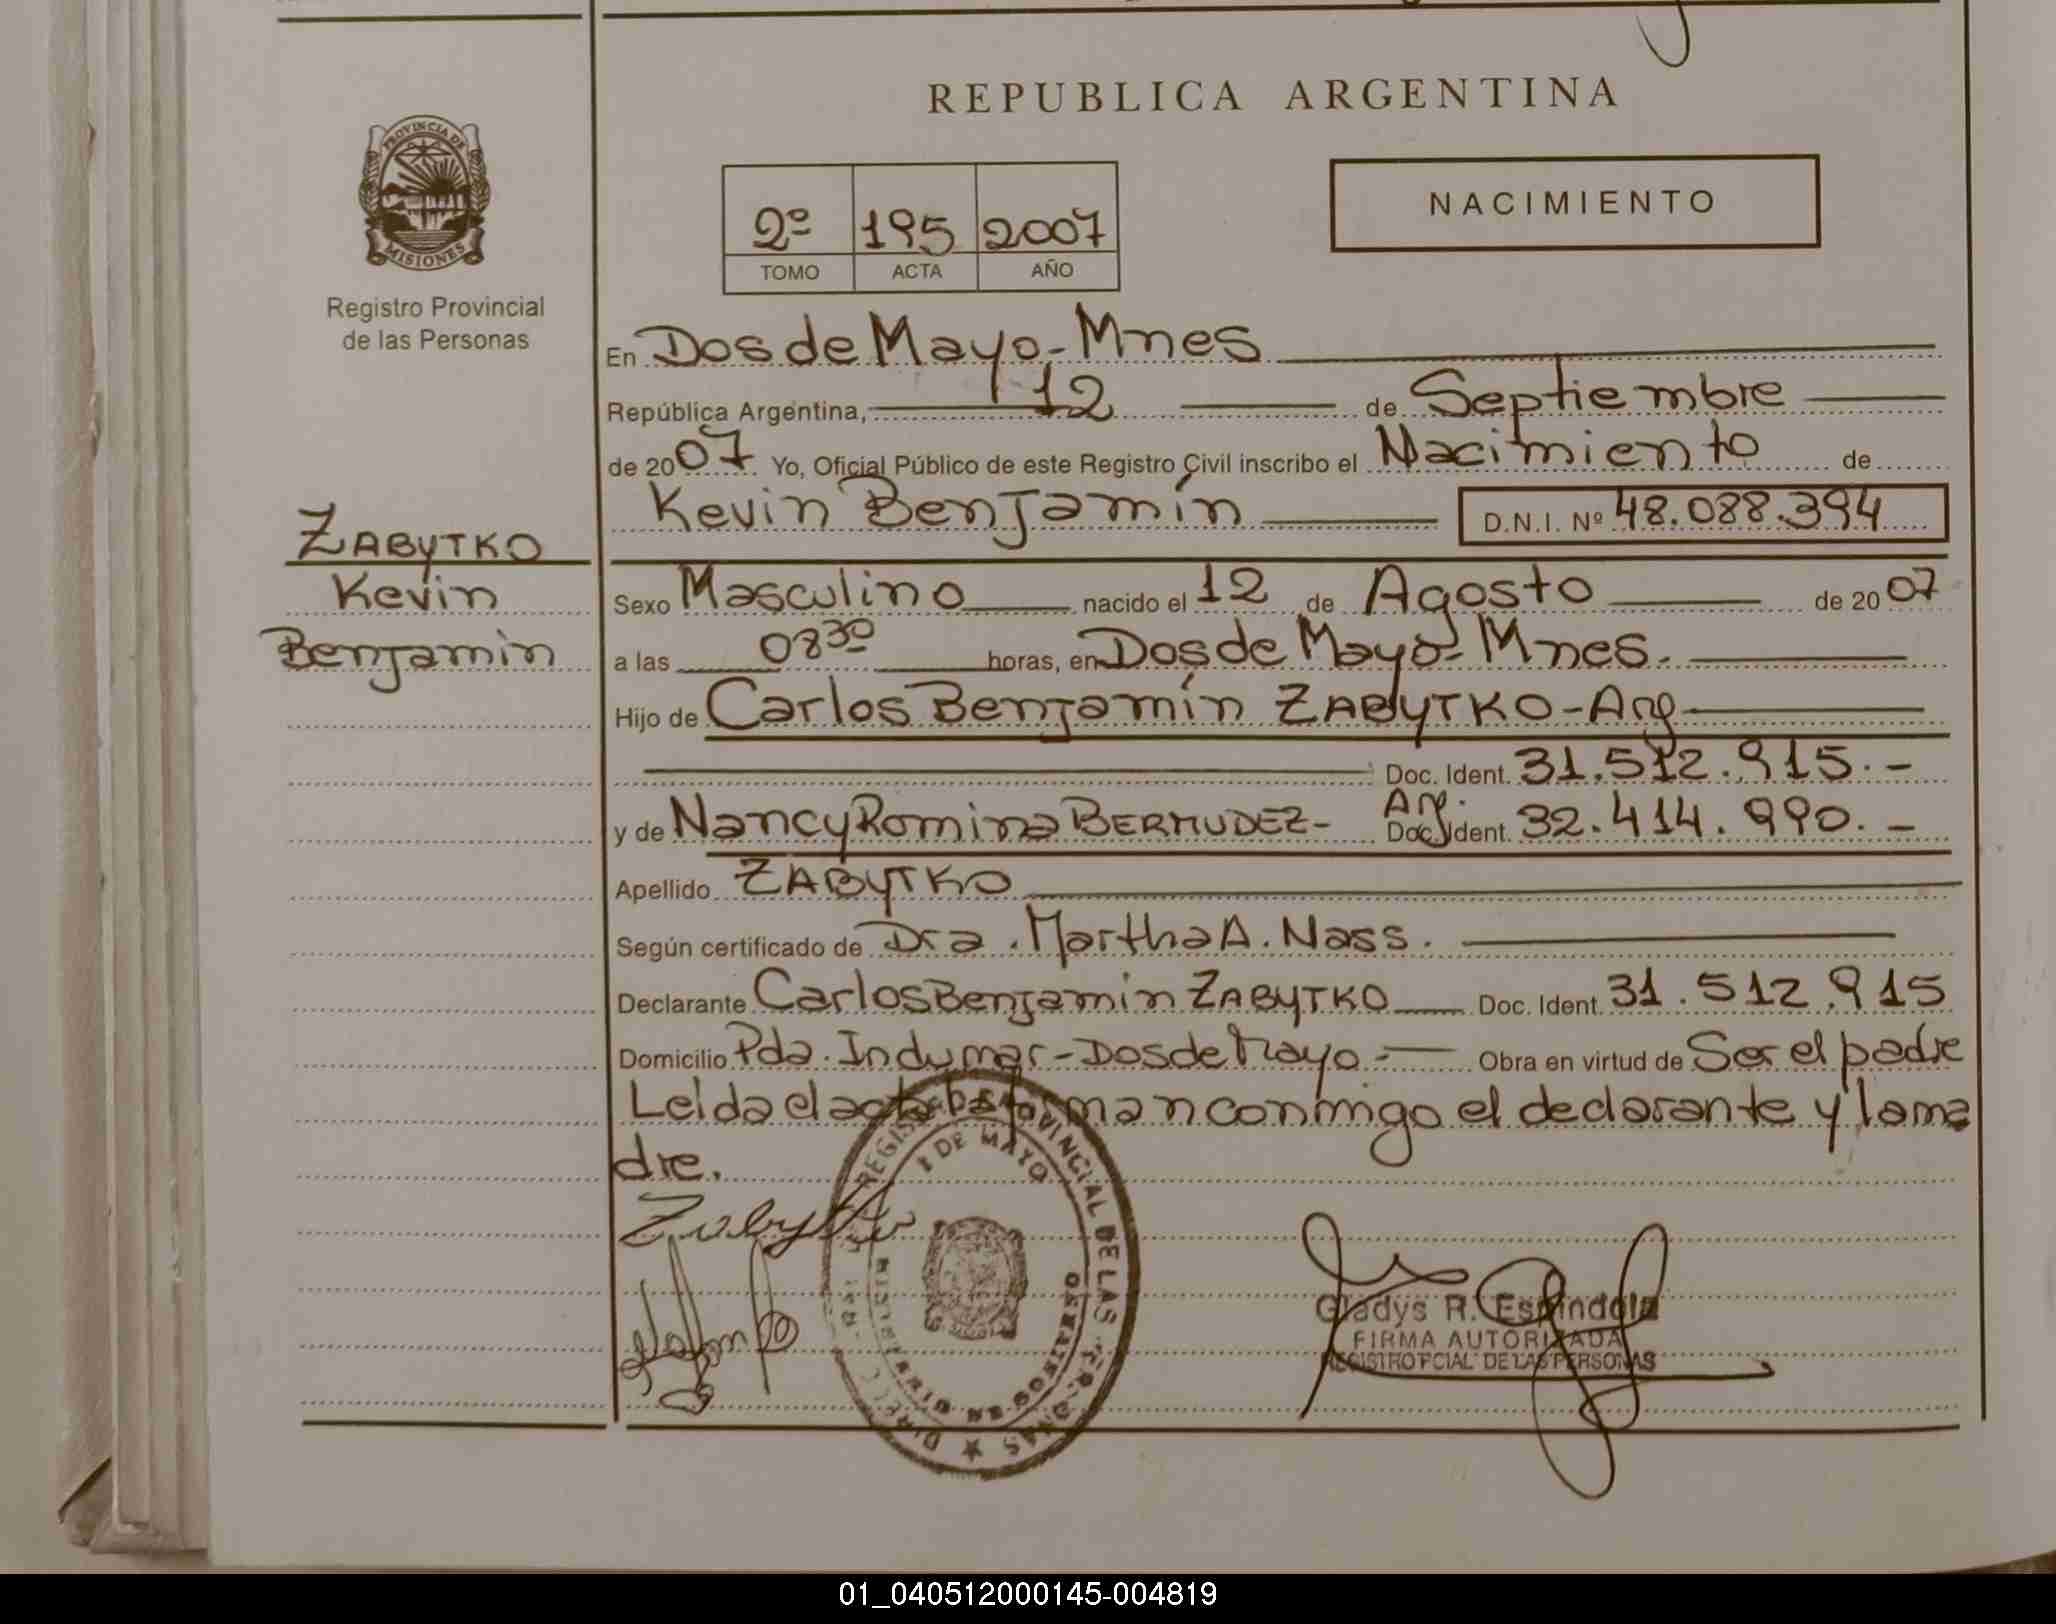 REPUBLICA ARGENTINA
PROVINCIA DE
MISIONES
Registro Provincial
de las Personas
2º 195 2007
TOMO ACTA AÑO
NACIMIENTO
En Dos de Mayo - Mnes
República Argentina, 12 de Septiembre
de 2007 Yo, Oficial Público de este Registro Civil inscribo el Nacimiento de
Kevin Benjamín D.N.I. Nº 48.088.394
ZABYTKO
Kevin
Benjamin
Sexo Masculino nacido el 12 de Agosto de 2007
a las 08 30 horas, en Dos de Mayo - Mnes.
Hijo de Carlos Benjamín ZABYTKO - Arg
Doc. Ident. 31.512.915.-
y de Nancy Romina BERMUDEZ - Arg. Doc. Ident. 32.414.990.-
Apellido ZABYTKO
Según certificado de Dra. Martha A. Nass.
Declarante Carlos Benjamin ZABYTKO Doc. Ident. 31.512.915
Domicilio Pda. Indumar - Dos de Mayo.- Obra en virtud de Ser el padre
Leida el acta la firman conmigo el declarante y la ma
dre.
Zabytko
REGISTRO PROVINCIAL DE LAS PERSONAS
2 DE MAYO
Gladys R. Espindola
FIRMA AUTORIZADA
REGISTRO PCIAL DE LAS PERSONAS
01_040512000145-004819